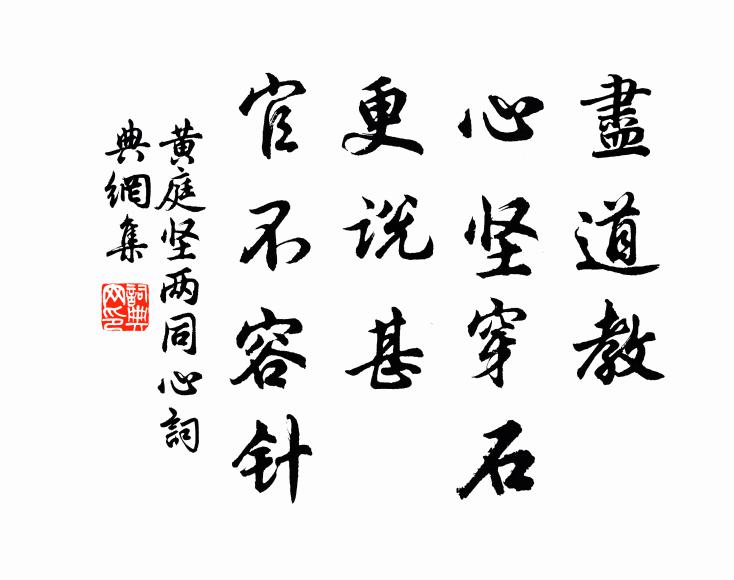 盡道教
心坚穿石
更说甚
官不容针
黄庭坚两同心詞
典網集
詞典网印